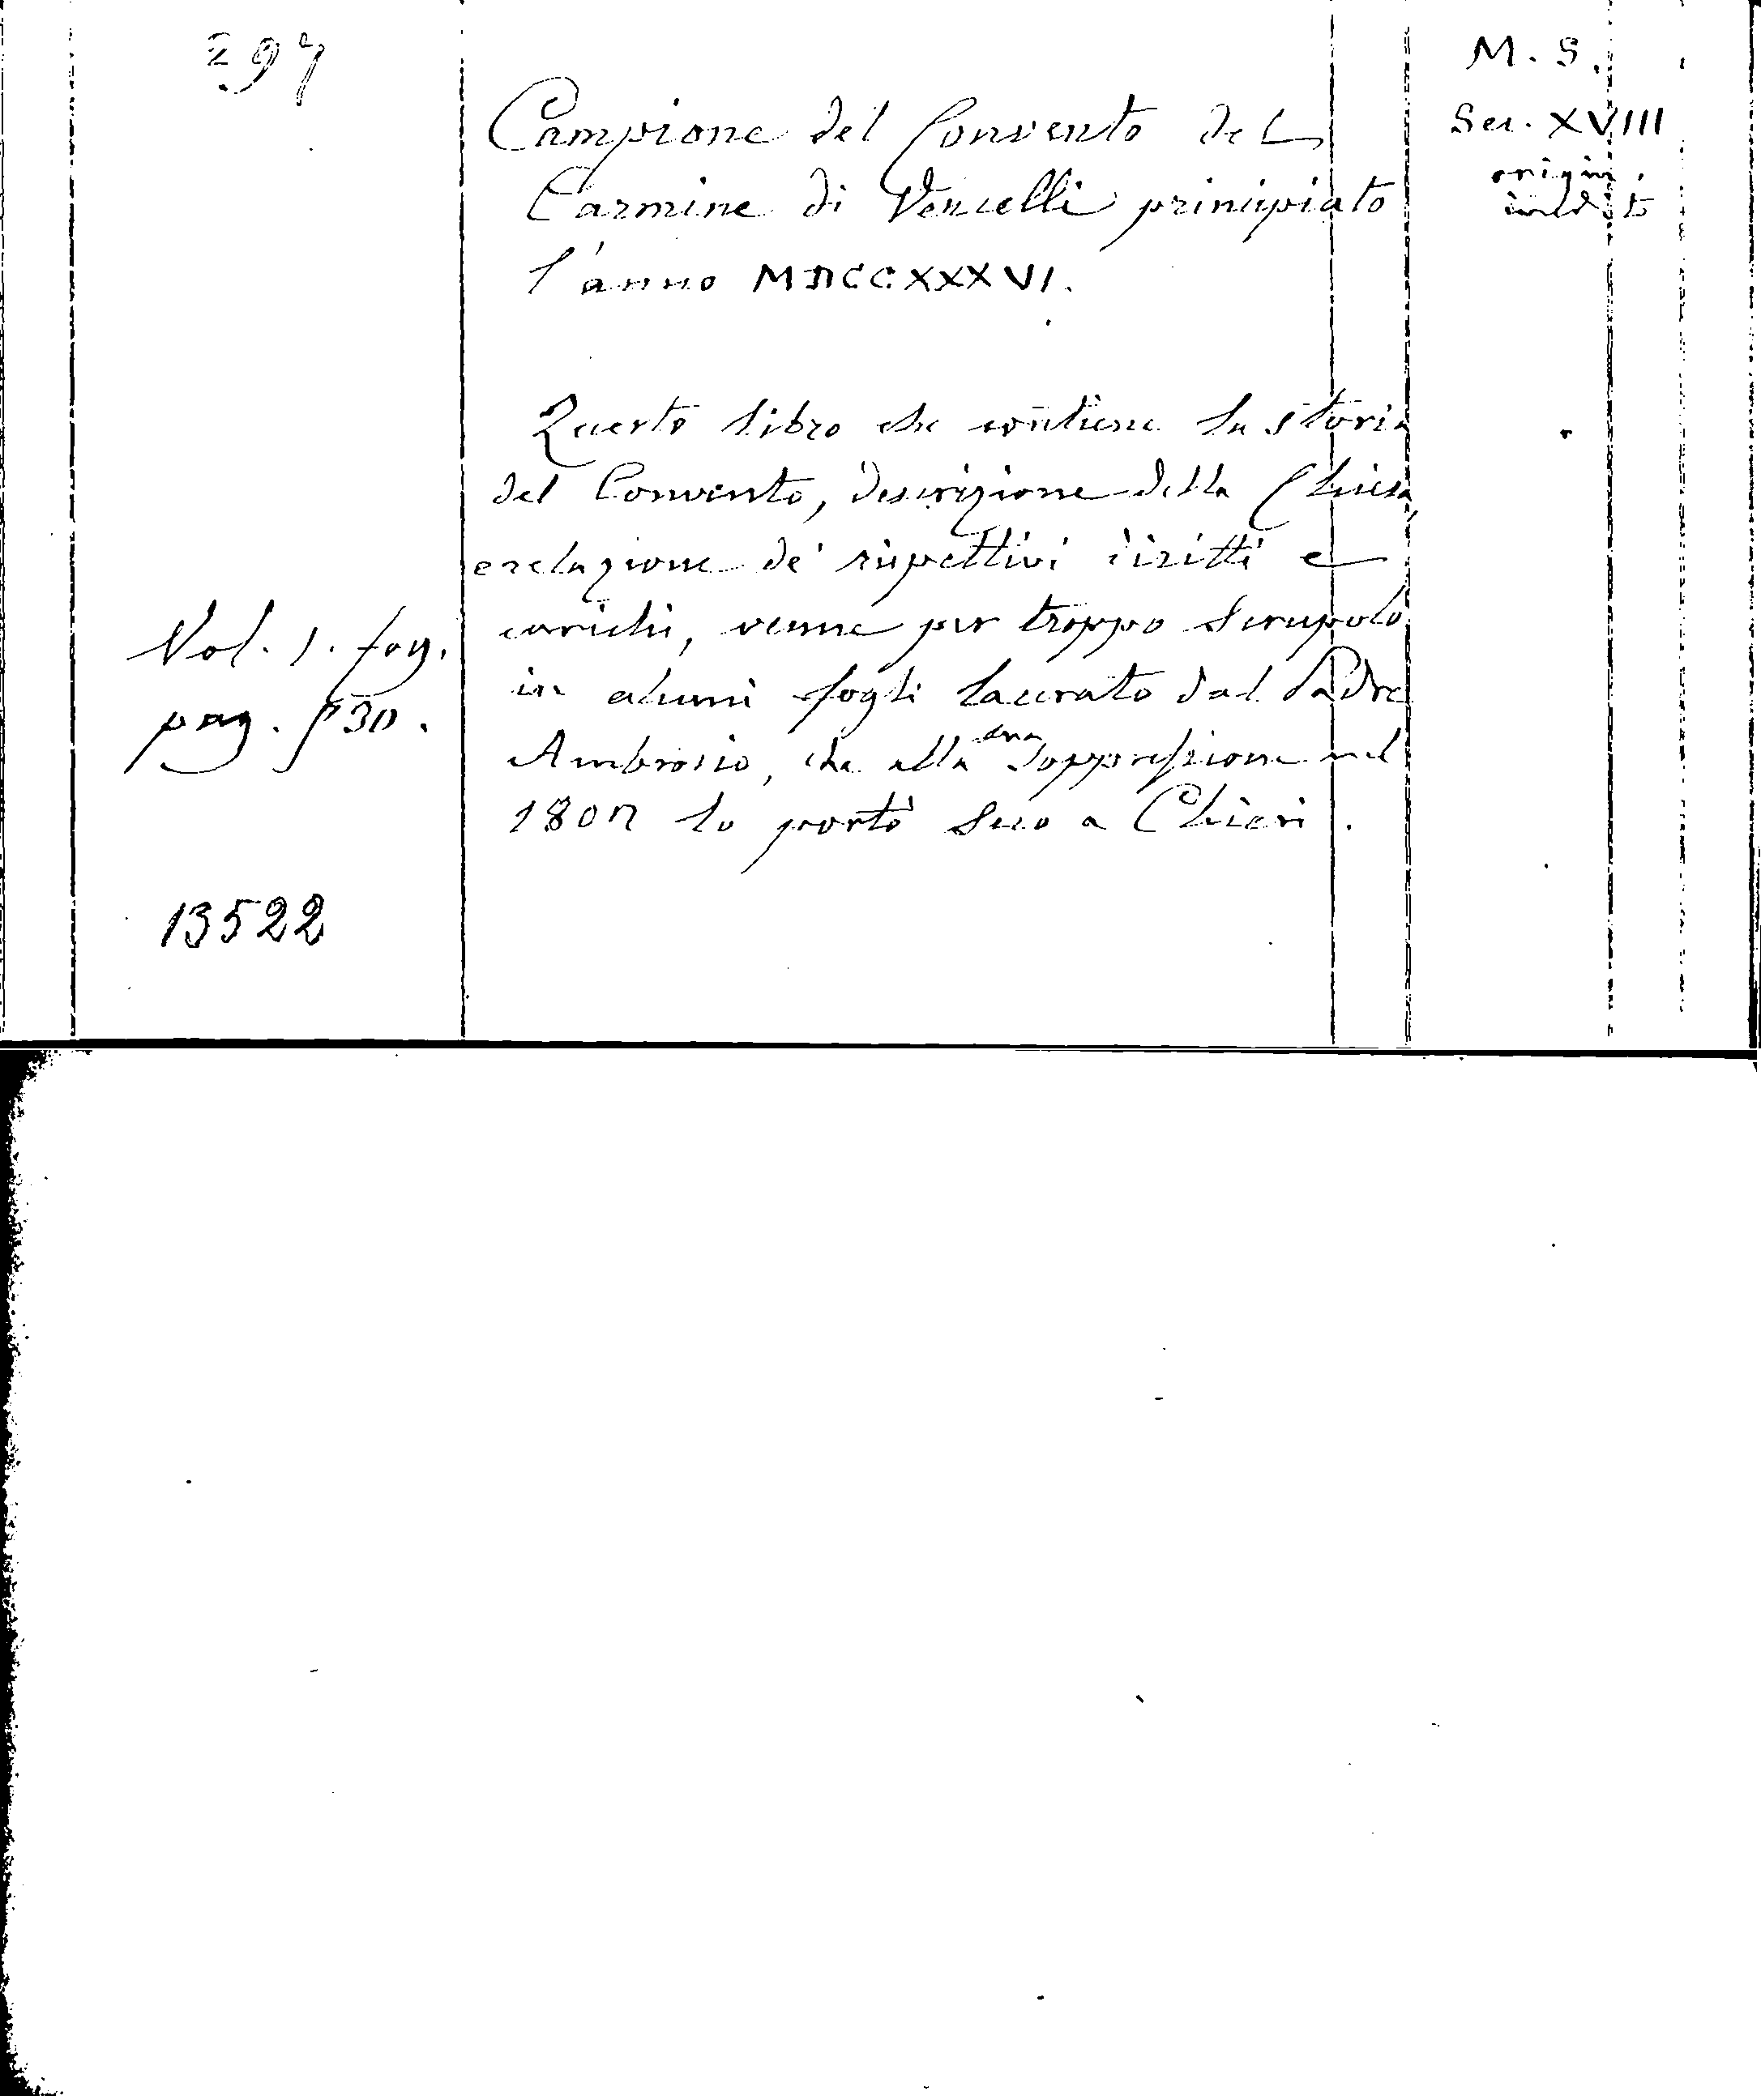 297
M. S.
Sec. XVIII
origin.
inedito
Campione del Convento del
Carmine di Vercelli principiato
l'anno MDCCXXXVI.
Questo libro che contiene la storia
del Convento, descrizione della Chiesa,
e relazione de' rispettivi diritti e
carichi, venne per troppo scrupolo
in alcuni fogli lacerato dal Padre
Ambrosio, che alla sua soppressione nel
1802 lo portò seco a Chieri.
Vol. 1. fog.
pag. 530.
13522